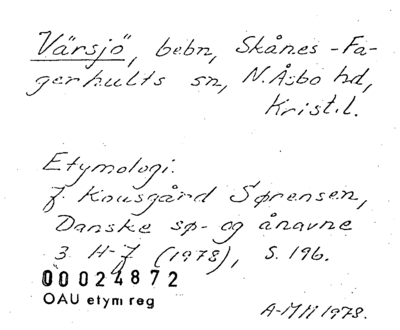 Värsjö, bebn, Skånes-Fa-
gerhults sn, N. Åsbo hd,
Krist. l.
Etymologi.
J. Kousgård Sørensen,
Danske sø- og ånavne
3 H-J (1978), s. 196.
00024872
OAU etym reg
1978.